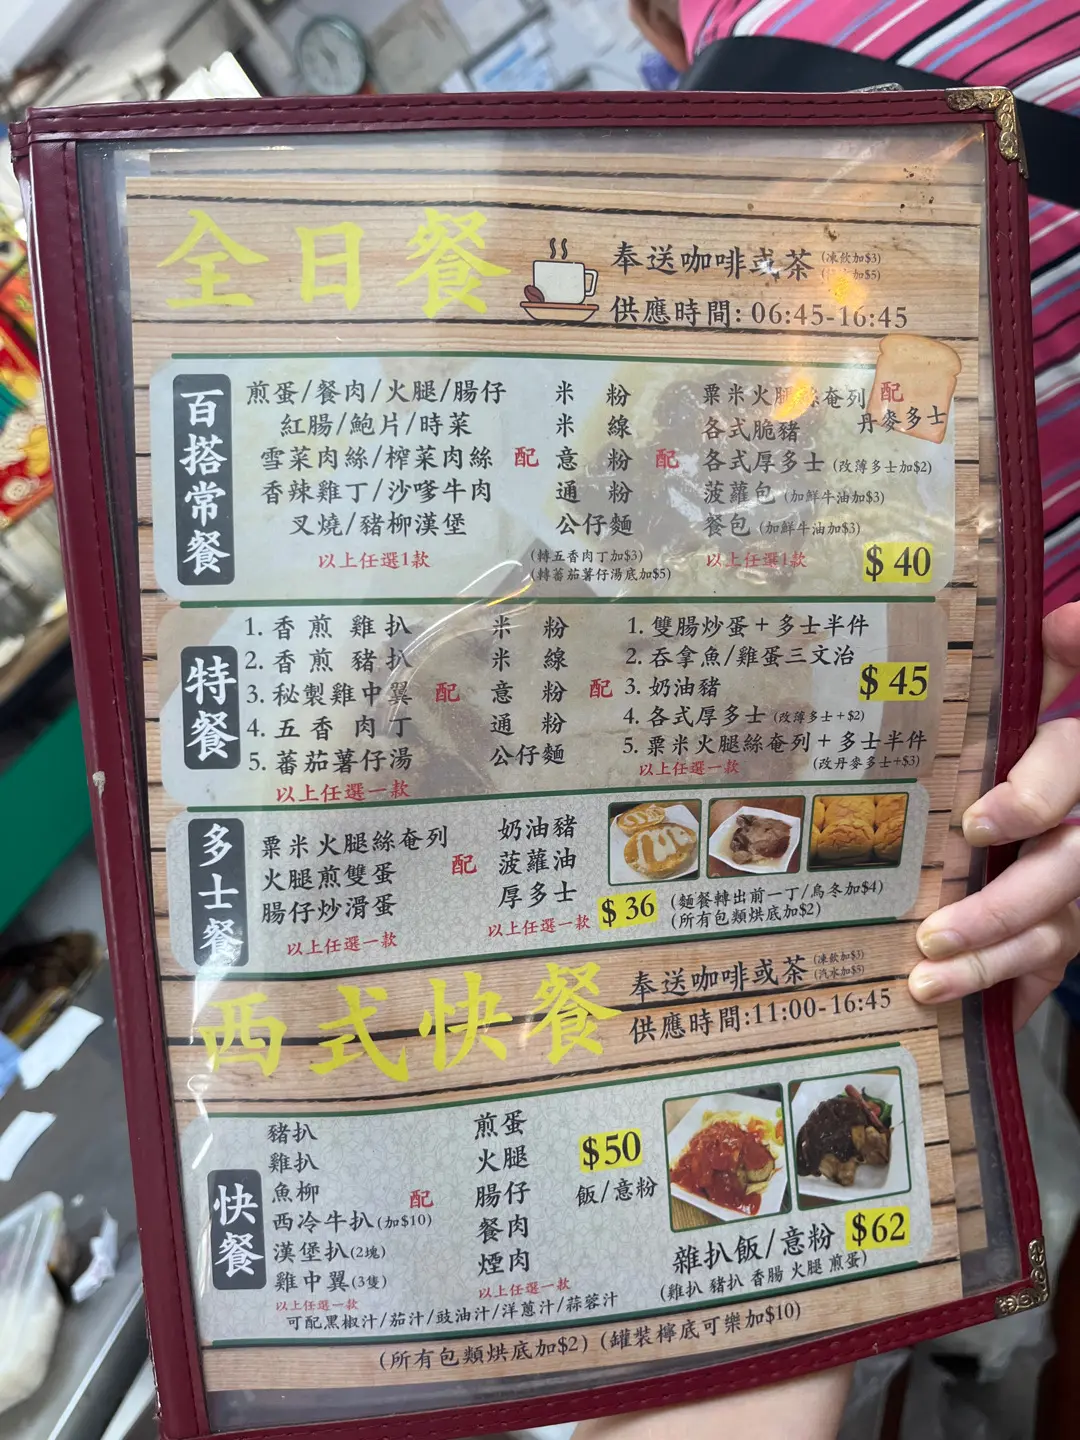 全日餐
奉送咖啡或茶 (凍飲加$3)
供應時間: 06:45-16:45
百搭常餐
煎蛋/餐肉/火腿/腸仔
紅腸/鮑片/時菜
雪菜肉絲/榨菜肉絲
香辣雞丁/沙嗲牛肉
叉燒/豬柳漢堡
以上任選1款
配
米粉
米線
意粉
通粉
公仔麵
(轉五香肉丁加$3)
(轉蕃茄薯仔湯底加$5)
配
粟米火腿絲奄列 配
丹麥多士
各式脆豬
各式厚多士 (改薄多士加$2)
菠蘿包 (加鮮牛油加$3)
餐包 (加鮮牛油加$3)
以上任選1款
$40
特餐
1. 香煎雞扒
2. 香煎豬扒
3. 秘製雞中翼
4. 五香肉丁
5. 蕃茄薯仔湯
以上任選一款
配
米粉
米線
意粉
通粉
公仔麵
配
1. 雙腸炒蛋+多士半件
2. 吞拿魚/雞蛋三文治
3. 奶油豬
4. 各式厚多士 (改薄多士+$2)
5. 粟米火腿絲奄列+多士半件
(改丹麥多士+$3)
以上任選一款
$45
多士餐
粟米火腿絲奄列
火腿煎雙蛋
腸仔炒滑蛋
以上任選一款
配
奶油豬
菠蘿油
厚多士
以上任選一款
$36
(麵餐轉出前一丁/烏冬加$4)
(所有包類烘底加$2)
西式快餐
奉送咖啡或茶 (凍飲加$3)
(汽水加$5)
供應時間:11:00-16:45
快餐
豬扒
雞扒
魚柳
西冷牛扒(加$10)
漢堡扒(2塊)
雞中翼(3隻)
以上任選一款
配
煎蛋
火腿
腸仔
餐肉
煙肉
以上任選一款
可配黑椒汁/茄汁/豉油汁/洋蔥汁/蒜蓉汁
$50
飯/意粉
雜扒飯/意粉 $62
(雞扒 豬扒 香腸 火腿 煎蛋)
(所有包類烘底加$2) (罐裝檸底可樂加$10)